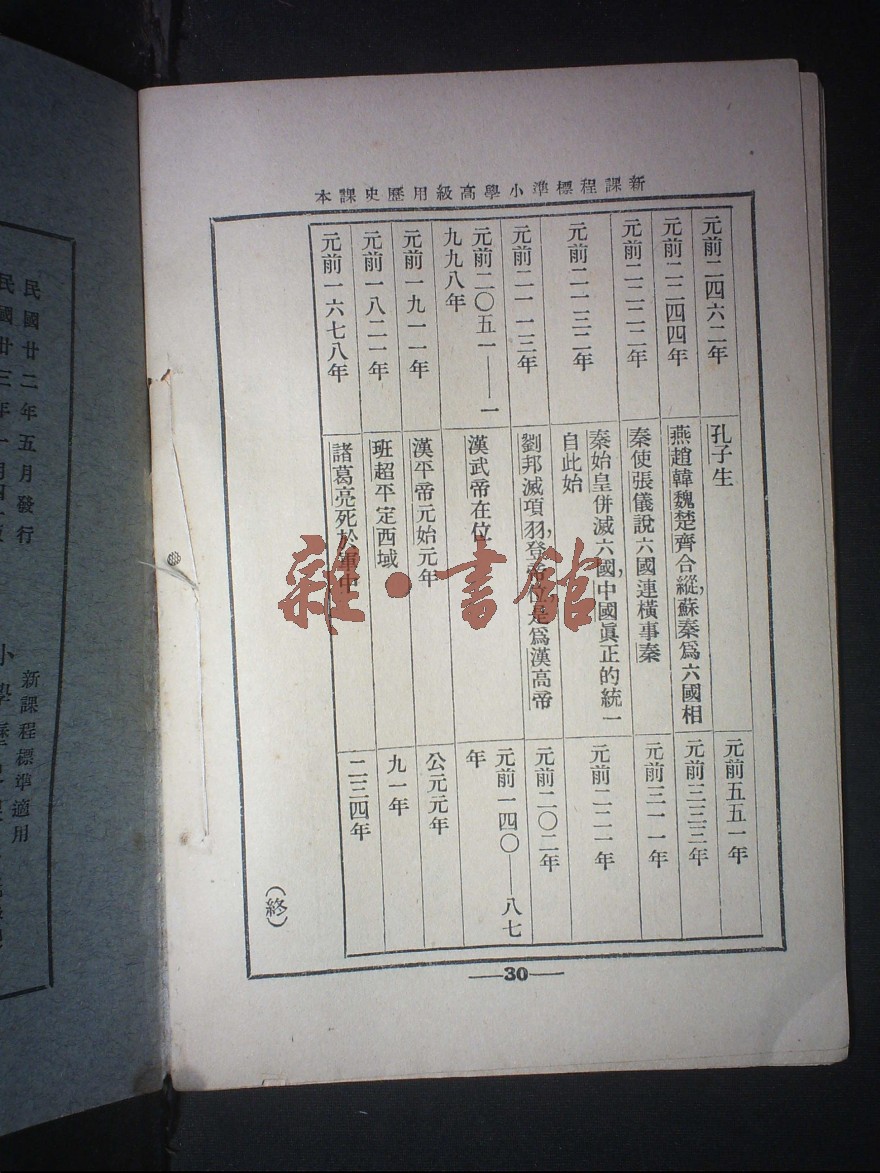 新課程標準小學高級用歷史課本
元前二四六二年
孔子生
元前五五一年
元前二二四四年
燕趙韓魏楚齊合縱，蘇秦爲六國相
元前三三三年
元前二二二二年
秦使張儀說六國連橫事秦
元前三一一年
元前二一三二年
秦始皇併滅六國，中國眞正的統一
自此始
元前二二一年
元前二一一三年
劉邦滅項羽，登帝位是爲漢高帝
元前二〇二年
元前二〇五一——一
九九八年
漢武帝在位
元前一四〇——八七
年
元前一九一一年
漢平帝元始元年
公元元年
元前一八二一年
班超平定西域
九一年
元前一六七八年
諸葛亮死於軍中
二三四年
（終）
—30—
雜·書館
民國廿二年五月發行
民國廿三年一月四版
新課程標準適用
小學